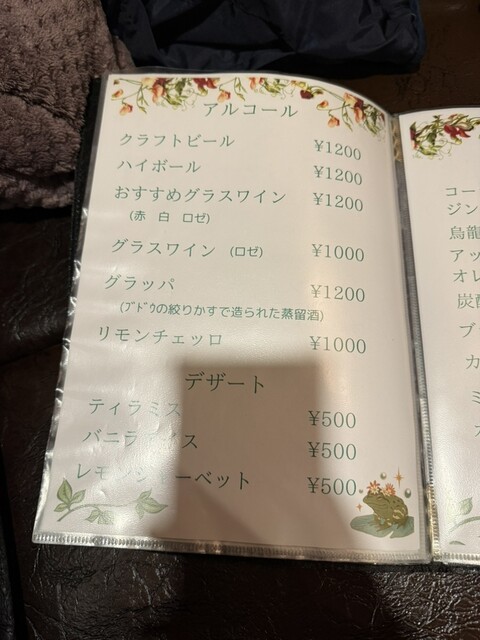 アルコール
クラフトビール ¥1200
ハイボール ¥1200
おすすめグラスワイン ¥1200
(赤 白 ロゼ)
グラスワイン (ロゼ) ¥1000
グラッパ ¥1200
(ﾌﾞﾄﾞｳの絞りかすで造られた蒸留酒)
リモンチェッロ ¥1000
デザート
ティラミス ¥500
バニラアイス ¥500
レモンシャーベット ¥500
コー
ジン
烏龍
アッ
オレ
炭酸
ブ
カ